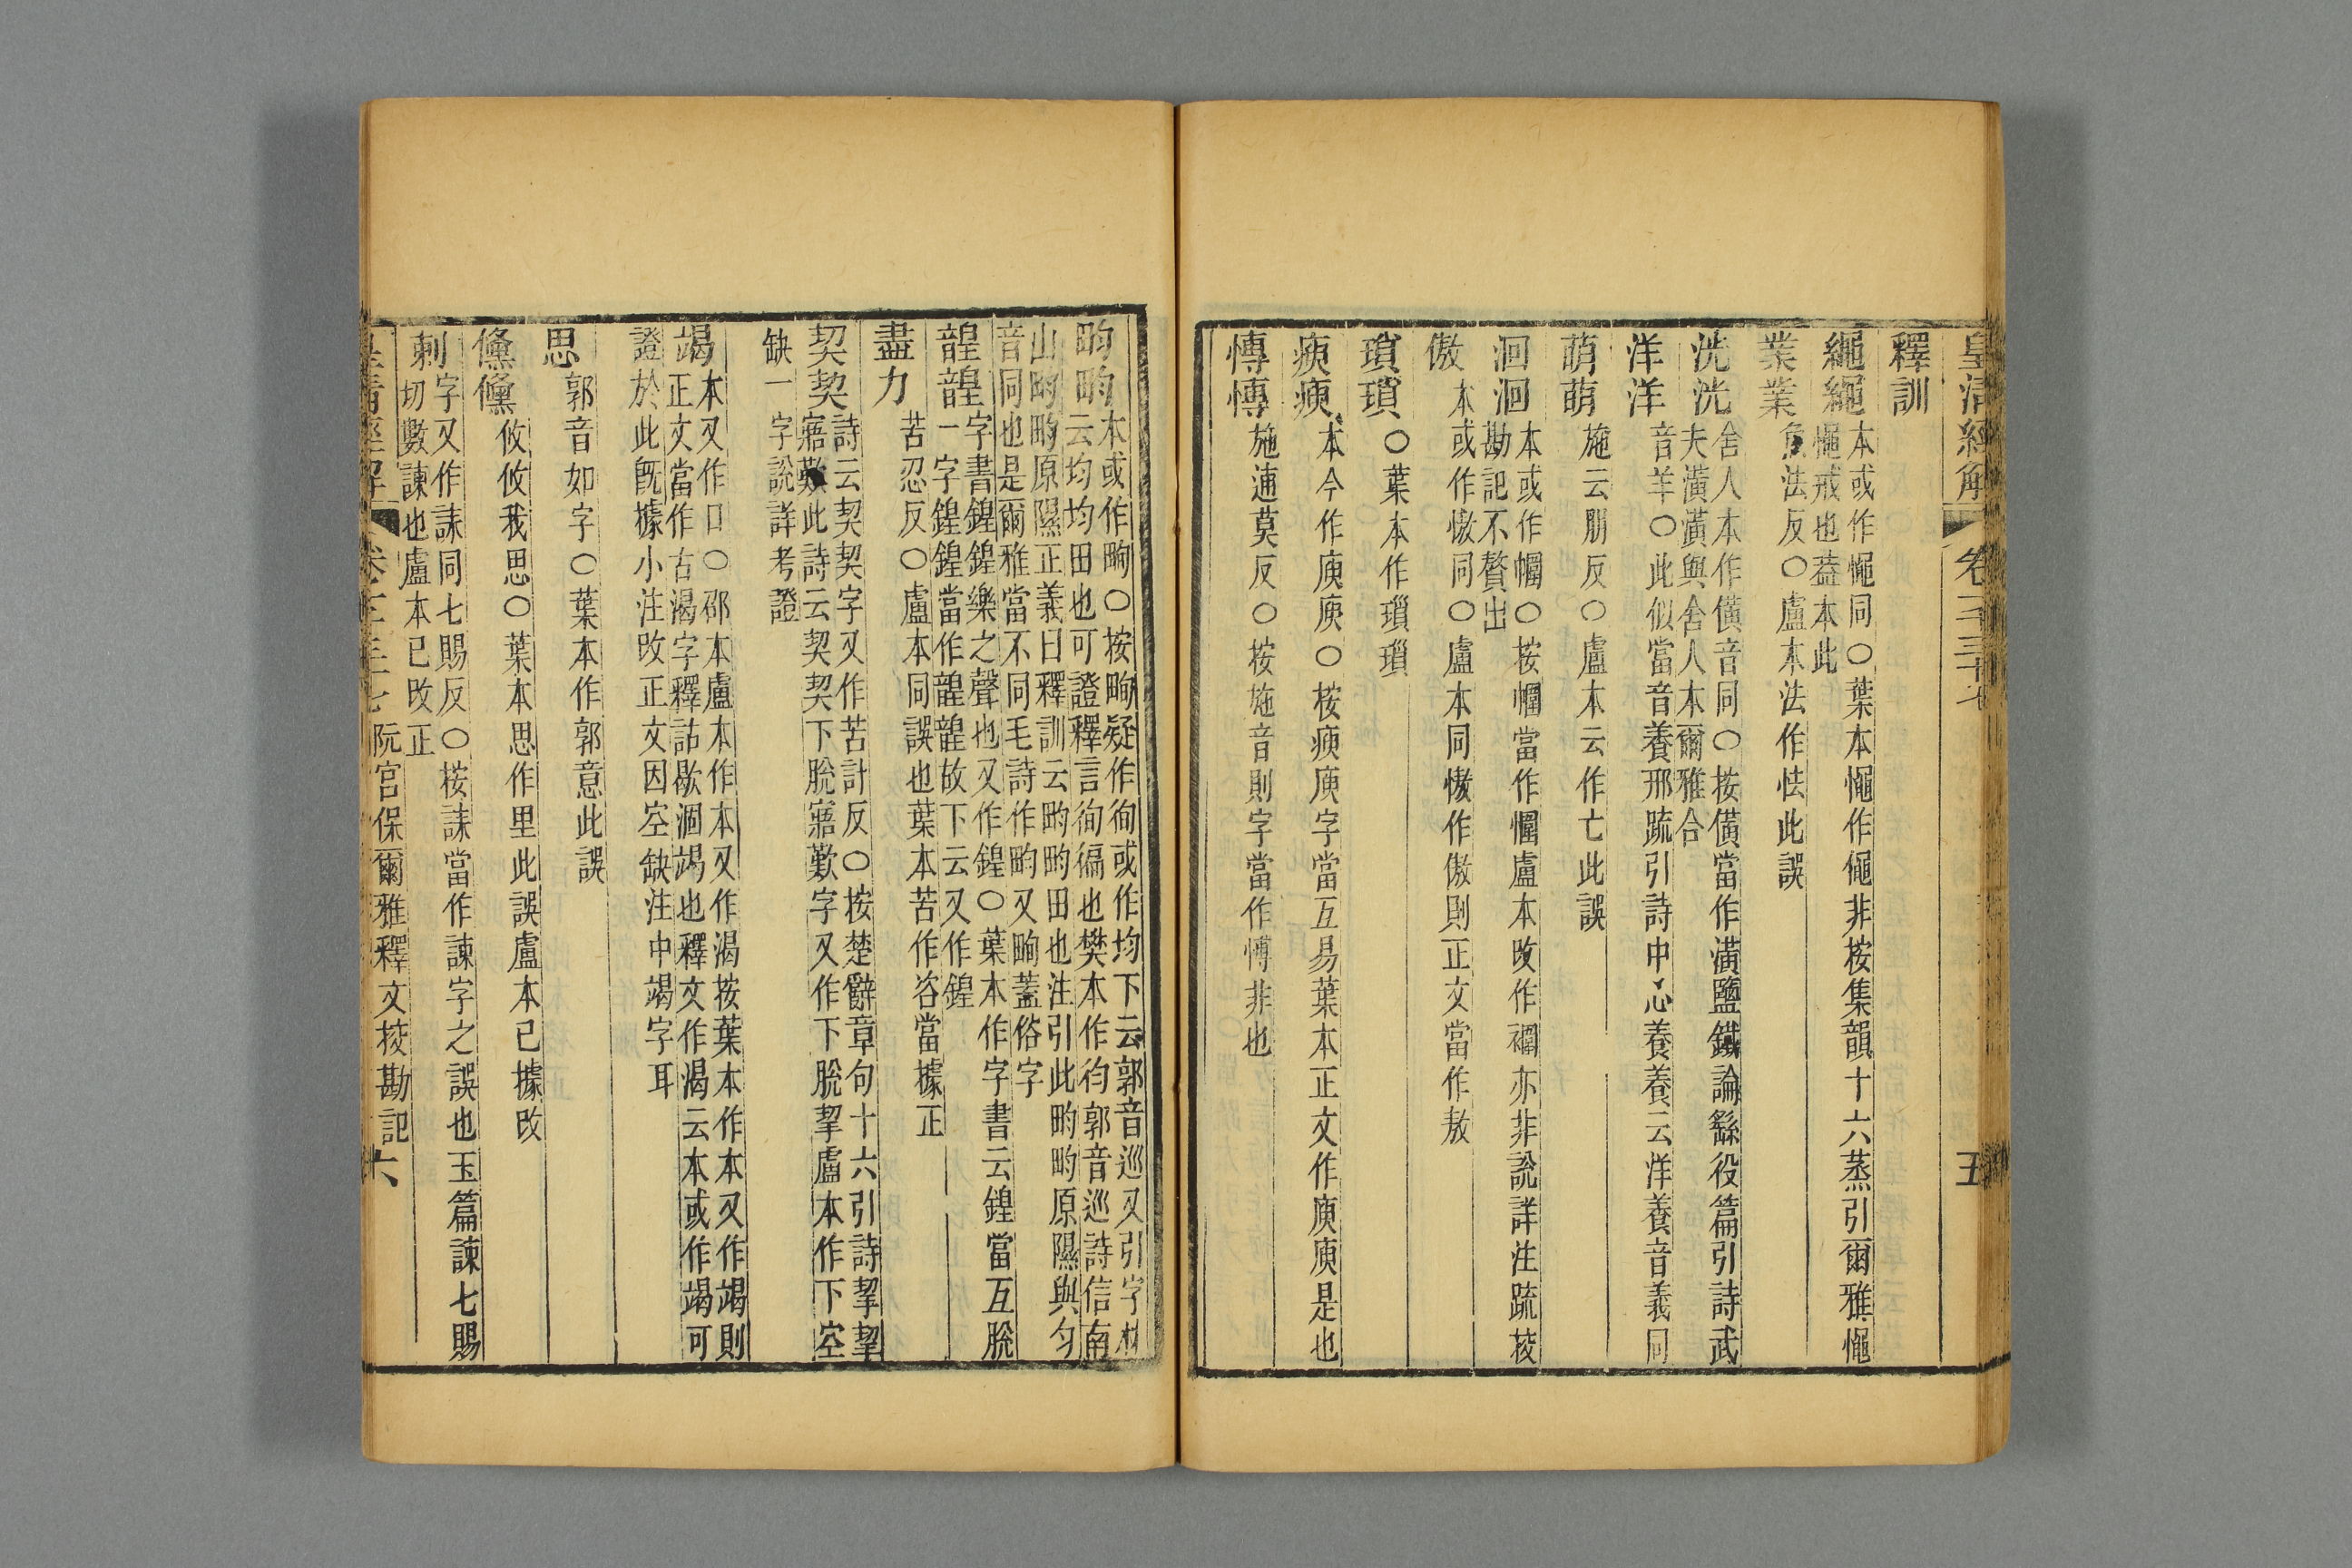 皇清經解 卷一千三十七 五
釋訓
繩繩本或作憴同〇葉本憴作僶非按集韻十六蒸引爾雅憴
憴戒也葢本此
業業魚法反〇盧本法作怯此誤
洸洸舍人本作僙音同〇按僙當作潢鹽鐵論繇役篇引詩武
夫潢潢與舍人本爾雅合
洋洋音羊〇此似當音養邢疏引詩中心養養云洋養音義同
萌萌施云朋反〇盧本云作亡此誤
洄洄本或作㡢〇按㡢當作㥜盧本改作䙟亦非說詳注疏挍
勘記不贅出
傲本或作慠同〇盧本同慠作傲則正文當作敖
瑣瑣〇葉本作瑣瑣
瘐瘐本今作庾庾〇按瘐庾字當互易葉本正文作庾庾是也
慱慱施逋莫反〇按施音則字當作愽非也
畇畇本或作㽦〇按㽦疑作徇或作均下云郭音巡又引字林
云均均田也可證釋言徇徧也樊本作徇郭音巡詩信南
山畇畇原隰正義曰釋訓云畇畇田也注引此畇畇原隰與勻
音同也是爾雅當不同毛詩作畇又㽦蓋俗字
韹韹字書鍠鍠樂之聲也又作鍠〇葉本作字書云鍠當互脫
一字鍠鍠當作韹韹故下云又作鍠
盡力苦忍反〇盧本同誤也葉本苦作咨當據正
契契詩云契契字又作苦計反〇按楚辭章句十六引詩挈挈
寤歎此詩云契契下脫寤歎字又作下脫挈盧本作下空
缺一字說詳考證
竭本又作口〇邵本盧本作本又作渴按葉本作本又作竭則
正文當作古渴字釋詁歇涸竭也釋文作渴云本或作竭可
證於此旣據小注改正文因空缺注中竭字耳
思郭音如字〇葉本作郭意此誤
儵儵攸攸我思〇葉本思作里此誤盧本已據改
刺字又作諫同七賜反〇按諫當作諫字之誤也玉篇諫七賜
切數諫也盧本已改正
皇清經解 卷一千三十七 阮宮保爾雅釋文挍勘記 六